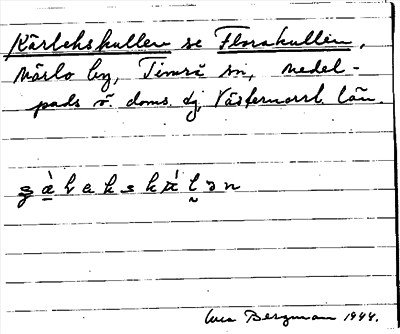 Kärlekskullen se Florakullen,
Märlo by, Timrå sn, Medel-
pads ö. doms. dj Västernorrl. län.
Bergman 1944.